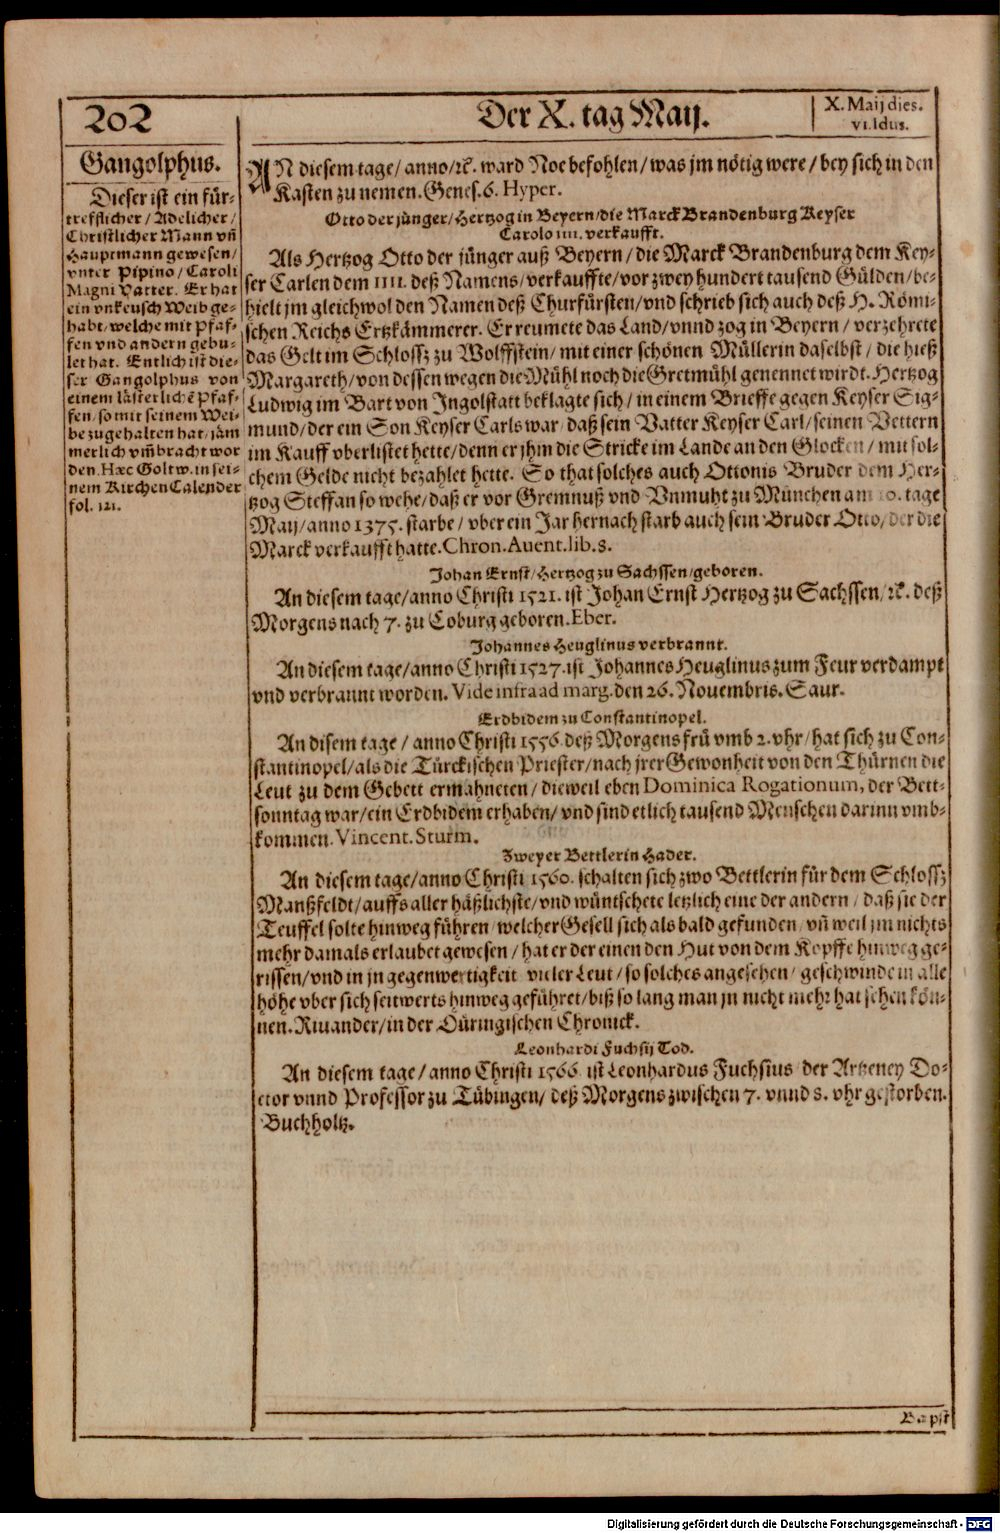 202
Der X. tag Maij.
X. Maij dies.
vi. Idus.
Gangolphus.
Dieser ist ein für-
trefflicher / Adelicher /
Christlicher Mann vñ
Hauptmann gewesen /
vnter Pipino / Caroli
Magni Vatter. Er hat
ein vnkeusch Weib ge-
habt / welche mit Pfaf-
fen vnd andern gebu-
let hat. Entlich ist die-
ser Gangolphus von
einem lästerlichẽ Pfaf-
fen / so mit seinem Wei-
be zugehalten hat / jäm
merlich vm̃bracht wor
den. Hæc Goltw. in sei-
nem KirchenCalender
fol. 121.
AN diesem tage / anno / ꝛc. ward Noe befohlen / was jm nötig were / bey sich in den
Kasten zu nemen. Genes. 6. Hyper.
Otto der jünger / Hertzog in Beyern / die Marck Brandenburg Keyser
Carolo iiii. verkaufft.
Als Hertzog Otto der jünger auß Beyern / die Marck Brandenburg dem Key-
ser Carlen dem IIII. deß Namens / verkauffte / vor zwey hundert tausend Gülden / be-
hielt jm gleichwol den Namen deß Churfürsten / vnd schrieb sich auch deß H. Römi-
schen Reichs Ertzkämmerer. Er reumete das Land / vnnd zog in Beyern / verzehrete
das Gelt im Schlossz zu Wolffstein / mit einer schönen Müllerin daselbst / die hieß
Margareth / von dessen wegen die Mühl noch die Gretmühl genennet wirdt. Hertzog
Ludwig im Bart von Ingolstatt beklagte sich / in einem Brieffe gegen Keyser Sig-
mund / der ein Son Keyser Carls war / daß sein Vatter Keyser Carl / seinen Vettern
im Kauff vberlistet hette / denn er jhm die Stricke im Lande an den Glocken / mit sol-
chem Gelde nicht bezahlet hette. So that solches auch Ottonis Bruder dem Her-
tzog Steffan so wehe / daß er vor Gremnuß vnd Vnmuht zu München am 10. tage
Maij / anno 1375. starbe / vber ein Jar hernach starb auch sein Bruder Otto / der die
Marck verkaufft hatte. Chron. Auent. lib. 8.
Johan Ernst / Hertzog zu Sachssen / geboren.
An diesem tage / anno Christi 1521. ist Johan Ernst Hertzog zu Sachssen / ꝛc. deß
Morgens nach 7. zu Coburg geboren. Eber.
Johannes Heuglinus verbrannt.
An diesem tage / anno Christi 1527. ist Johannes Heuglinus zum Feur verdampt
vnd verbrannt worden. Vide infra ad marg. den 26. Nouembris. Saur.
Erdbidem zu Constantinopel.
An disem tage / anno Christi 1556. deß Morgens frü vmb 2. vhr / hat sich zu Con-
stantinopel / als die Türckischen Priester / nach jrer Gewonheit von den Thürnen die
Leut zu dem Gebett ermahneten / dieweil eben Dominica Rogationum, der Bett-
sonntag war / ein Erdbidem erhaben / vnd sind etlich tausend Menschen darinn vmb-
kommen. Vincent. Sturm.
Zweyer Bettlerin Hader.
An diesem tage / anno Christi 1560. schalten sich zwo Bettlerin für dem Schlossz
Manßfeldt / auffs aller häßlichste / vnd wüntschete letzlich eine der andern / daß sie der
Teuffel solte hinweg führen / welcher Gesell sich als bald gefunden / vñ weil jm nichts
mehr damals erlaubet gewesen / hat er der einen den Hut von dem Kopffe hinweg ge-
rissen / vnd in jn gegenwertigkeit vieler Leut / so solches angesehen / geschwinde in alle
höhe vber sich seitwerts hinweg geführet / biß so lang man jn nicht mehr hat sehen kön-
nen. Riuander / in der Düringischen Chronick.
Leonhardi Fuchsij Tod.
An diesem tage / anno Christi 1566. ist Leonhardus Fuchsius der Artzeney Do-
ctor vnnd Professor zu Tübingen / deß Morgens zwischen 7. vnnd 8. vhr gestorben.
Buchholtz.
Bapst
Digitalisierung gefördert durch die Deutsche Forschungsgemeinschaft - DFG